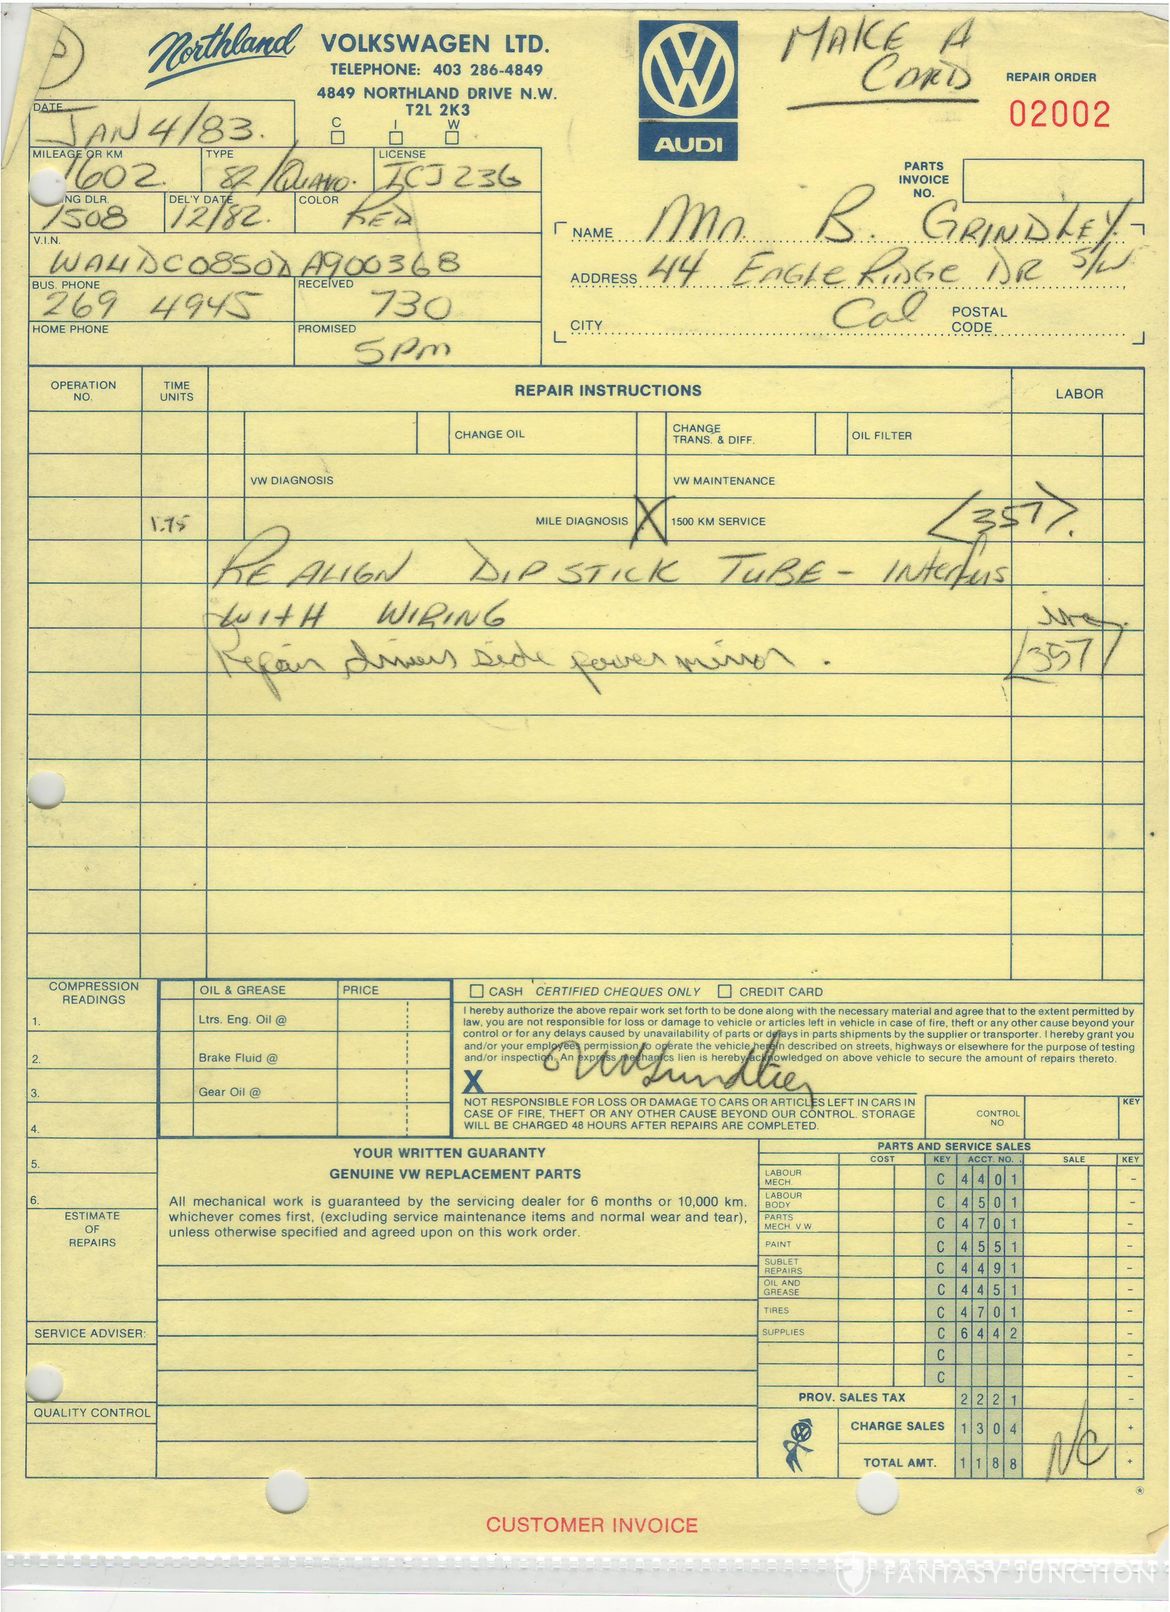 Northland VOLKSWAGEN LTD.
TELEPHONE: 403 286-4849
4849 NORTHLAND DRIVE N.W.
T2L 2K3
C I W
AUDI
MAKE A
CARD
REPAIR ORDER
02002
PARTS
INVOICE
NO.
DATE
JAN 4/83.
MILEAGE OR KM
1602.
TYPE
82/
LICENSE
ICJ 236
NG DLR.
1508
DEL'Y DATE
12/82.
COLOR
RED
V.I.N.
WAUDC0850DA900368
BUS. PHONE
269 4945
RECEIVED
730
HOME PHONE
PROMISED
5PM
NAME Mr. B. GRINDLEY
ADDRESS 44 EAGLE RIDGE DR S/W
CITY Cal POSTAL
CODE
OPERATION
NO.
TIME
UNITS
REPAIR INSTRUCTIONS
LABOR
CHANGE OIL
CHANGE
TRANS. & DIFF.
OIL FILTER
VW DIAGNOSIS
VW MAINTENANCE
1.75
MILE DIAGNOSIS X 1500 KM SERVICE <357>.
RE ALIGN DIPSTICK TUBE -
WITH WIRING
Repair drivers side power mirror. 357
COMPRESSION
READINGS
1.
2.
3.
4.
5.
6.
OIL & GREASE PRICE
Ltrs. Eng. Oil @
Brake Fluid @
Gear Oil @
CASH CERTIFIED CHEQUES ONLY CREDIT CARD
I hereby authorize the above repair work set forth to be done along with the necessary material and agree that to the extent permitted by
law, you are not responsible for loss or damage to vehicle or articles left in vehicle in case of fire, theft or any other cause beyond your
control or for any delays caused by unavailability of parts or delays in parts shipments by the supplier or transporter. I hereby grant you
and/or your employees permission to operate the vehicle herein described on streets, highways or elsewhere for the purpose of testing
and/or inspection. An express mechanics lien is hereby acknowledged on above vehicle to secure the amount of repairs thereto.
X
NOT RESPONSIBLE FOR LOSS OR DAMAGE TO CARS OR ARTICLES LEFT IN CARS IN
CASE OF FIRE, THEFT OR ANY OTHER CAUSE BEYOND OUR CONTROL. STORAGE
WILL BE CHARGED 48 HOURS AFTER REPAIRS ARE COMPLETED.
CONTROL
NO
KEY
YOUR WRITTEN GUARANTY
GENUINE VW REPLACEMENT PARTS
All mechanical work is guaranteed by the servicing dealer for 6 months or 10,000 km.
whichever comes first, (excluding service maintenance items and normal wear and tear),
unless otherwise specified and agreed upon on this work order.
ESTIMATE
OF
REPAIRS
SERVICE ADVISER:
QUALITY CONTROL
PARTS AND SERVICE SALES
COST KEY ACCT. NO. SALE KEY
LABOUR
MECH. C 4401 -
LABOUR
BODY C 4501 -
PARTS
MECH. V W C 4701 -
PAINT C 4551 -
SUBLET
REPAIRS C 4491 -
OIL AND
GREASE C 4451 -
TIRES C 4701 -
SUPPLIES C 6442 -
C -
C -
PROV. SALES TAX 2221 -
CHARGE SALES 1304 +
TOTAL AMT. 1188 NC +
CUSTOMER INVOICE
FANTASY JUNCTION